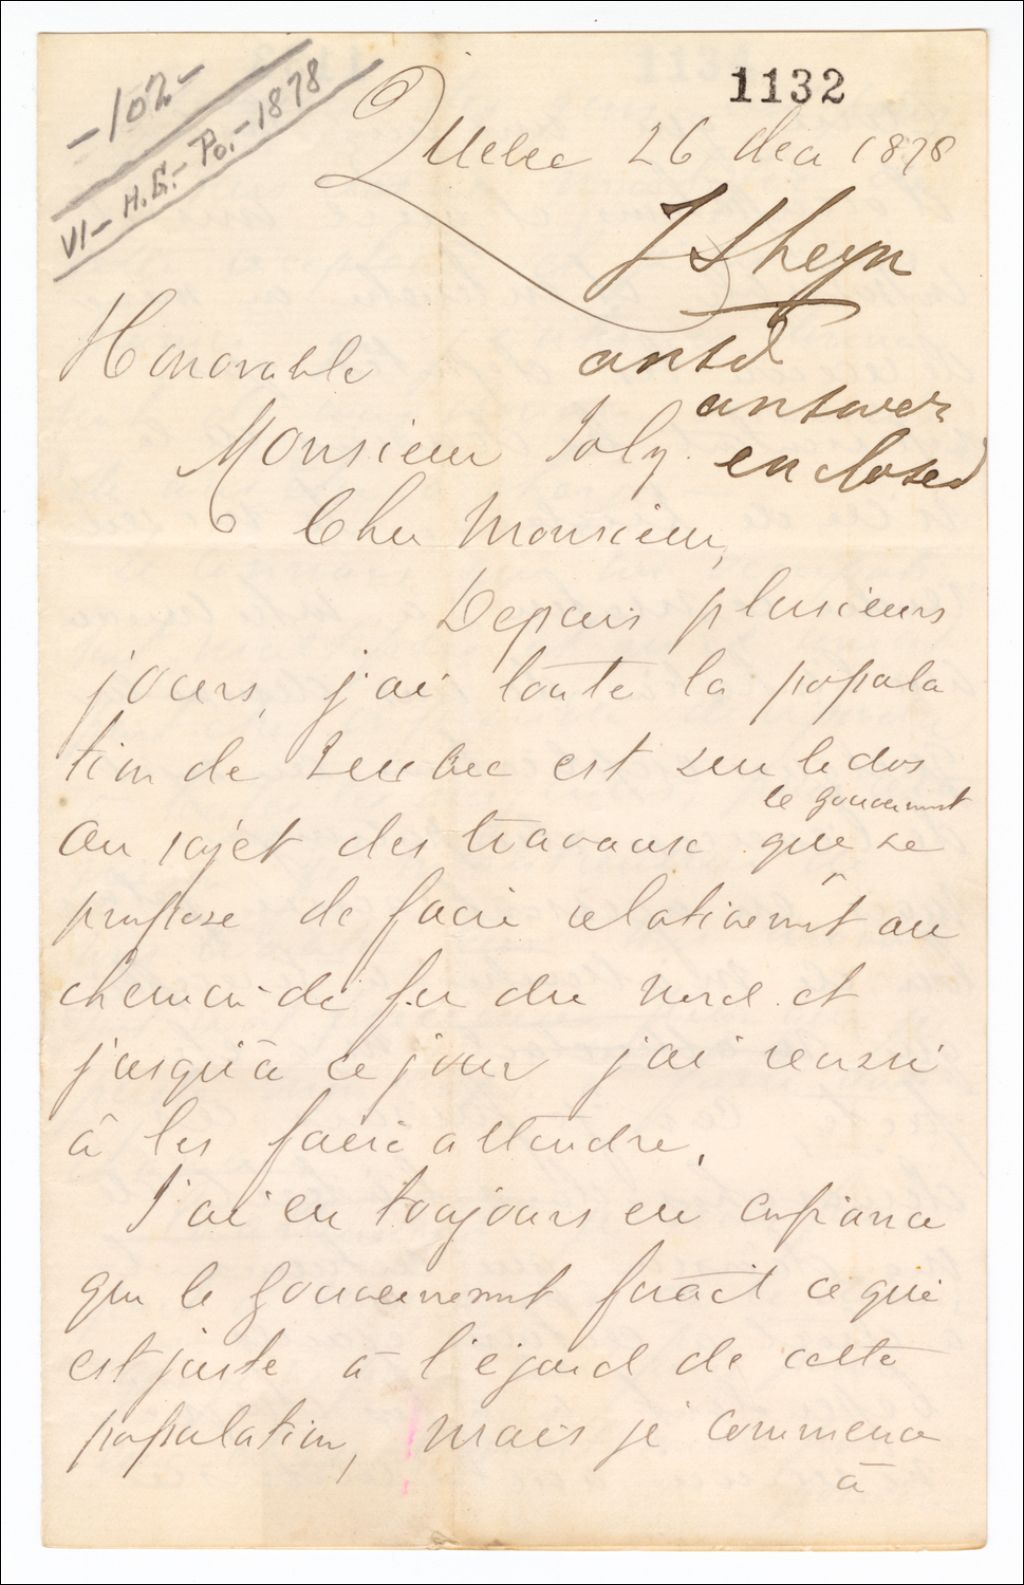 1132
-102-
VI-H.G.-Po.-1878
Quebec 26 dec 1878
J Shehyn
ansd
answer
enclosed
Honorable
Monsieur Joly.
Cher Monsieur,
Depuis plusieurs
jours, j'ai toute la popula
tion de Quebec est sur le dos
le gouvernmt
au sujet des travaux que se
propose de faire relativemt au
chemin de fer du nord et
jusqu'à ce jour j'ai reussi
à les faire attendre.
J'ai eu toujours eu confiance
que le Gouvernemnt ferait ce qui
est juste à l'égard de cette
population, mais je commence
à